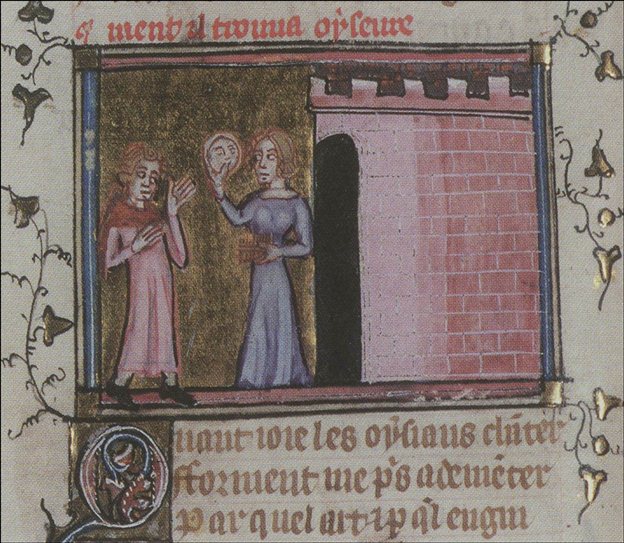 ꝯment il trouua oyseure
Quant ioie les oysiaus chãter
fforment me p's ademẽter
Par quel art q̃l engin